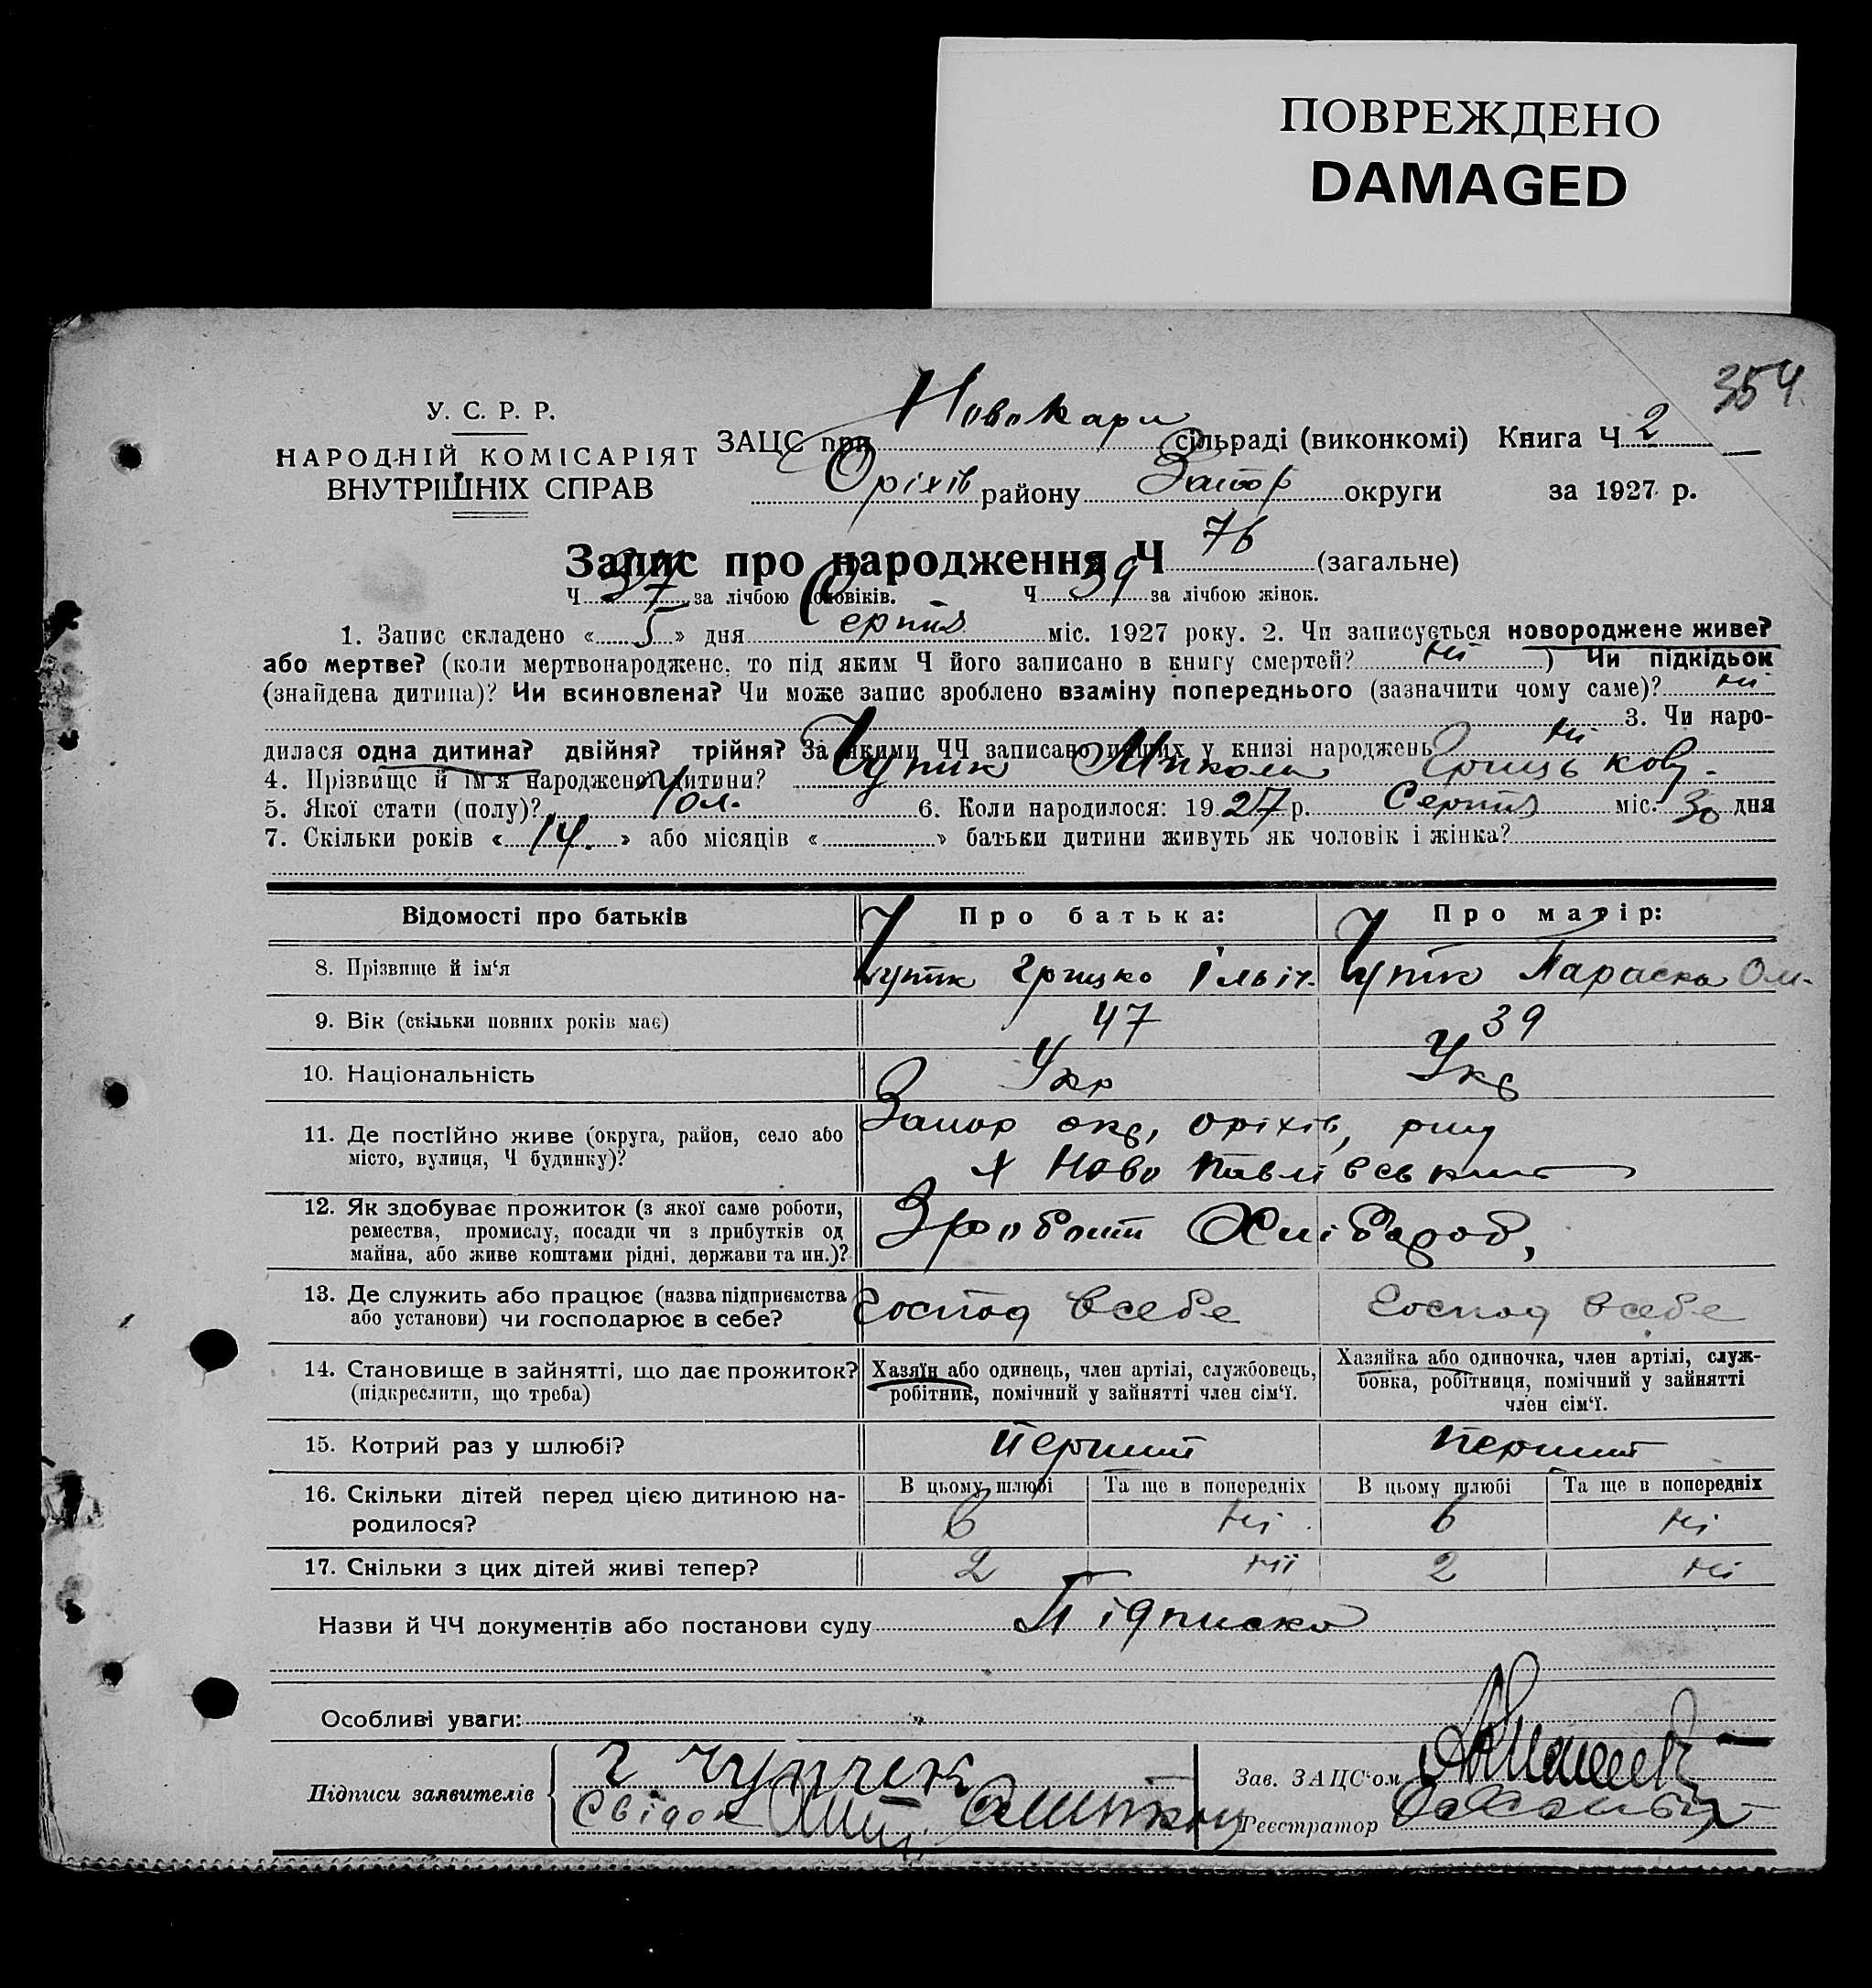 ПОВРЕЖДЕНО
DAMAGED
354
У. С. Р. Р.
НАРОДНІЙ КОМІСАРІЯТ
ВНУТРІШНІХ СПРАВ
ЗАЦС при Новокарл сільраді (виконкомі) Книга Ч 2
Оріхів району Запор округи за 1927 р.
Запис про народження Ч 76 (загальне)
Ч 37 за лічбою чоловіків. Ч 39 за лічбою жінок.
1. Запис складено «5» дня Серпня міс. 1927 року. 2. Чи записується новороджене живе?
або мертве? (коли мертвонароджене, то під яким Ч його записано в книгу смертей? ні ) Чи підкідьок
(знайдена дитина)? Чи всиновлена? Чи може запис зроблено взаміну попереднього (зазначити чому саме)? ні
3. Чи наро-
дилася одна дитина? двійня? трійня? За якими ЧЧ записано инших у книзі народжень ні
4. Прізвище й ім'я народженої дитини? Чупик Микола Грицьков.
5. Якої стати (полу)? Чол. 6. Коли народилося: 1927 р. Серпня міс. 30 дня
7. Скільки років «14.» або місяців « » батьки дитини живуть як чоловік і жінка?
Відомості про батьків Про батька: Про матір:
8. Прізвище й ім'я Чупик Грицко Ільіч. Чупик Параска Ом.
9. Вік (скільки повних років має) 47 39
10. Національність Укр Укр
11. Де постійно живе (округа, район, село або Запор окр, Оріхів,
місто, вулиця, Ч будинку)? х Ново Павлівський
12. Як здобуває прожиток (з якої саме роботи,
ремества, промислу, посади чи з прибутків од
майна, або живе коштами рідні, держави та ин.)? Зроботи Хлібороб,
13. Де служить або працює (назва підприємства Господ всебе Господ всебе
або установи) чи господарює в себе?
14. Становище в зайнятті, що дає прожиток? Хазяїн або одинець, член артілі, службовець, Хазяйка або одиночка, член артілі, служ-
(підкреслити, що треба) робітник, помічний у зайнятті член сім'ї. бовка, робітниця, помічний у зайнятті
член сім'ї.
15. Котрий раз у шлюбі? Перший Перший
16. Скільки дітей перед цією дитиною на- В цьому шлюбі Та ще в попередніх В цьому шлюбі Та ще в попередніх
родилося? 6 ні 6 ні
17. Скільки з цих дітей живі тепер? 2 ні 2 ні
Назви й ЧЧ документів або постанови суду Підписка
Особливі уваги:
Підписи заявителів Г Чупчик Зав. ЗАЦС'ом
Свідок Реєстратор